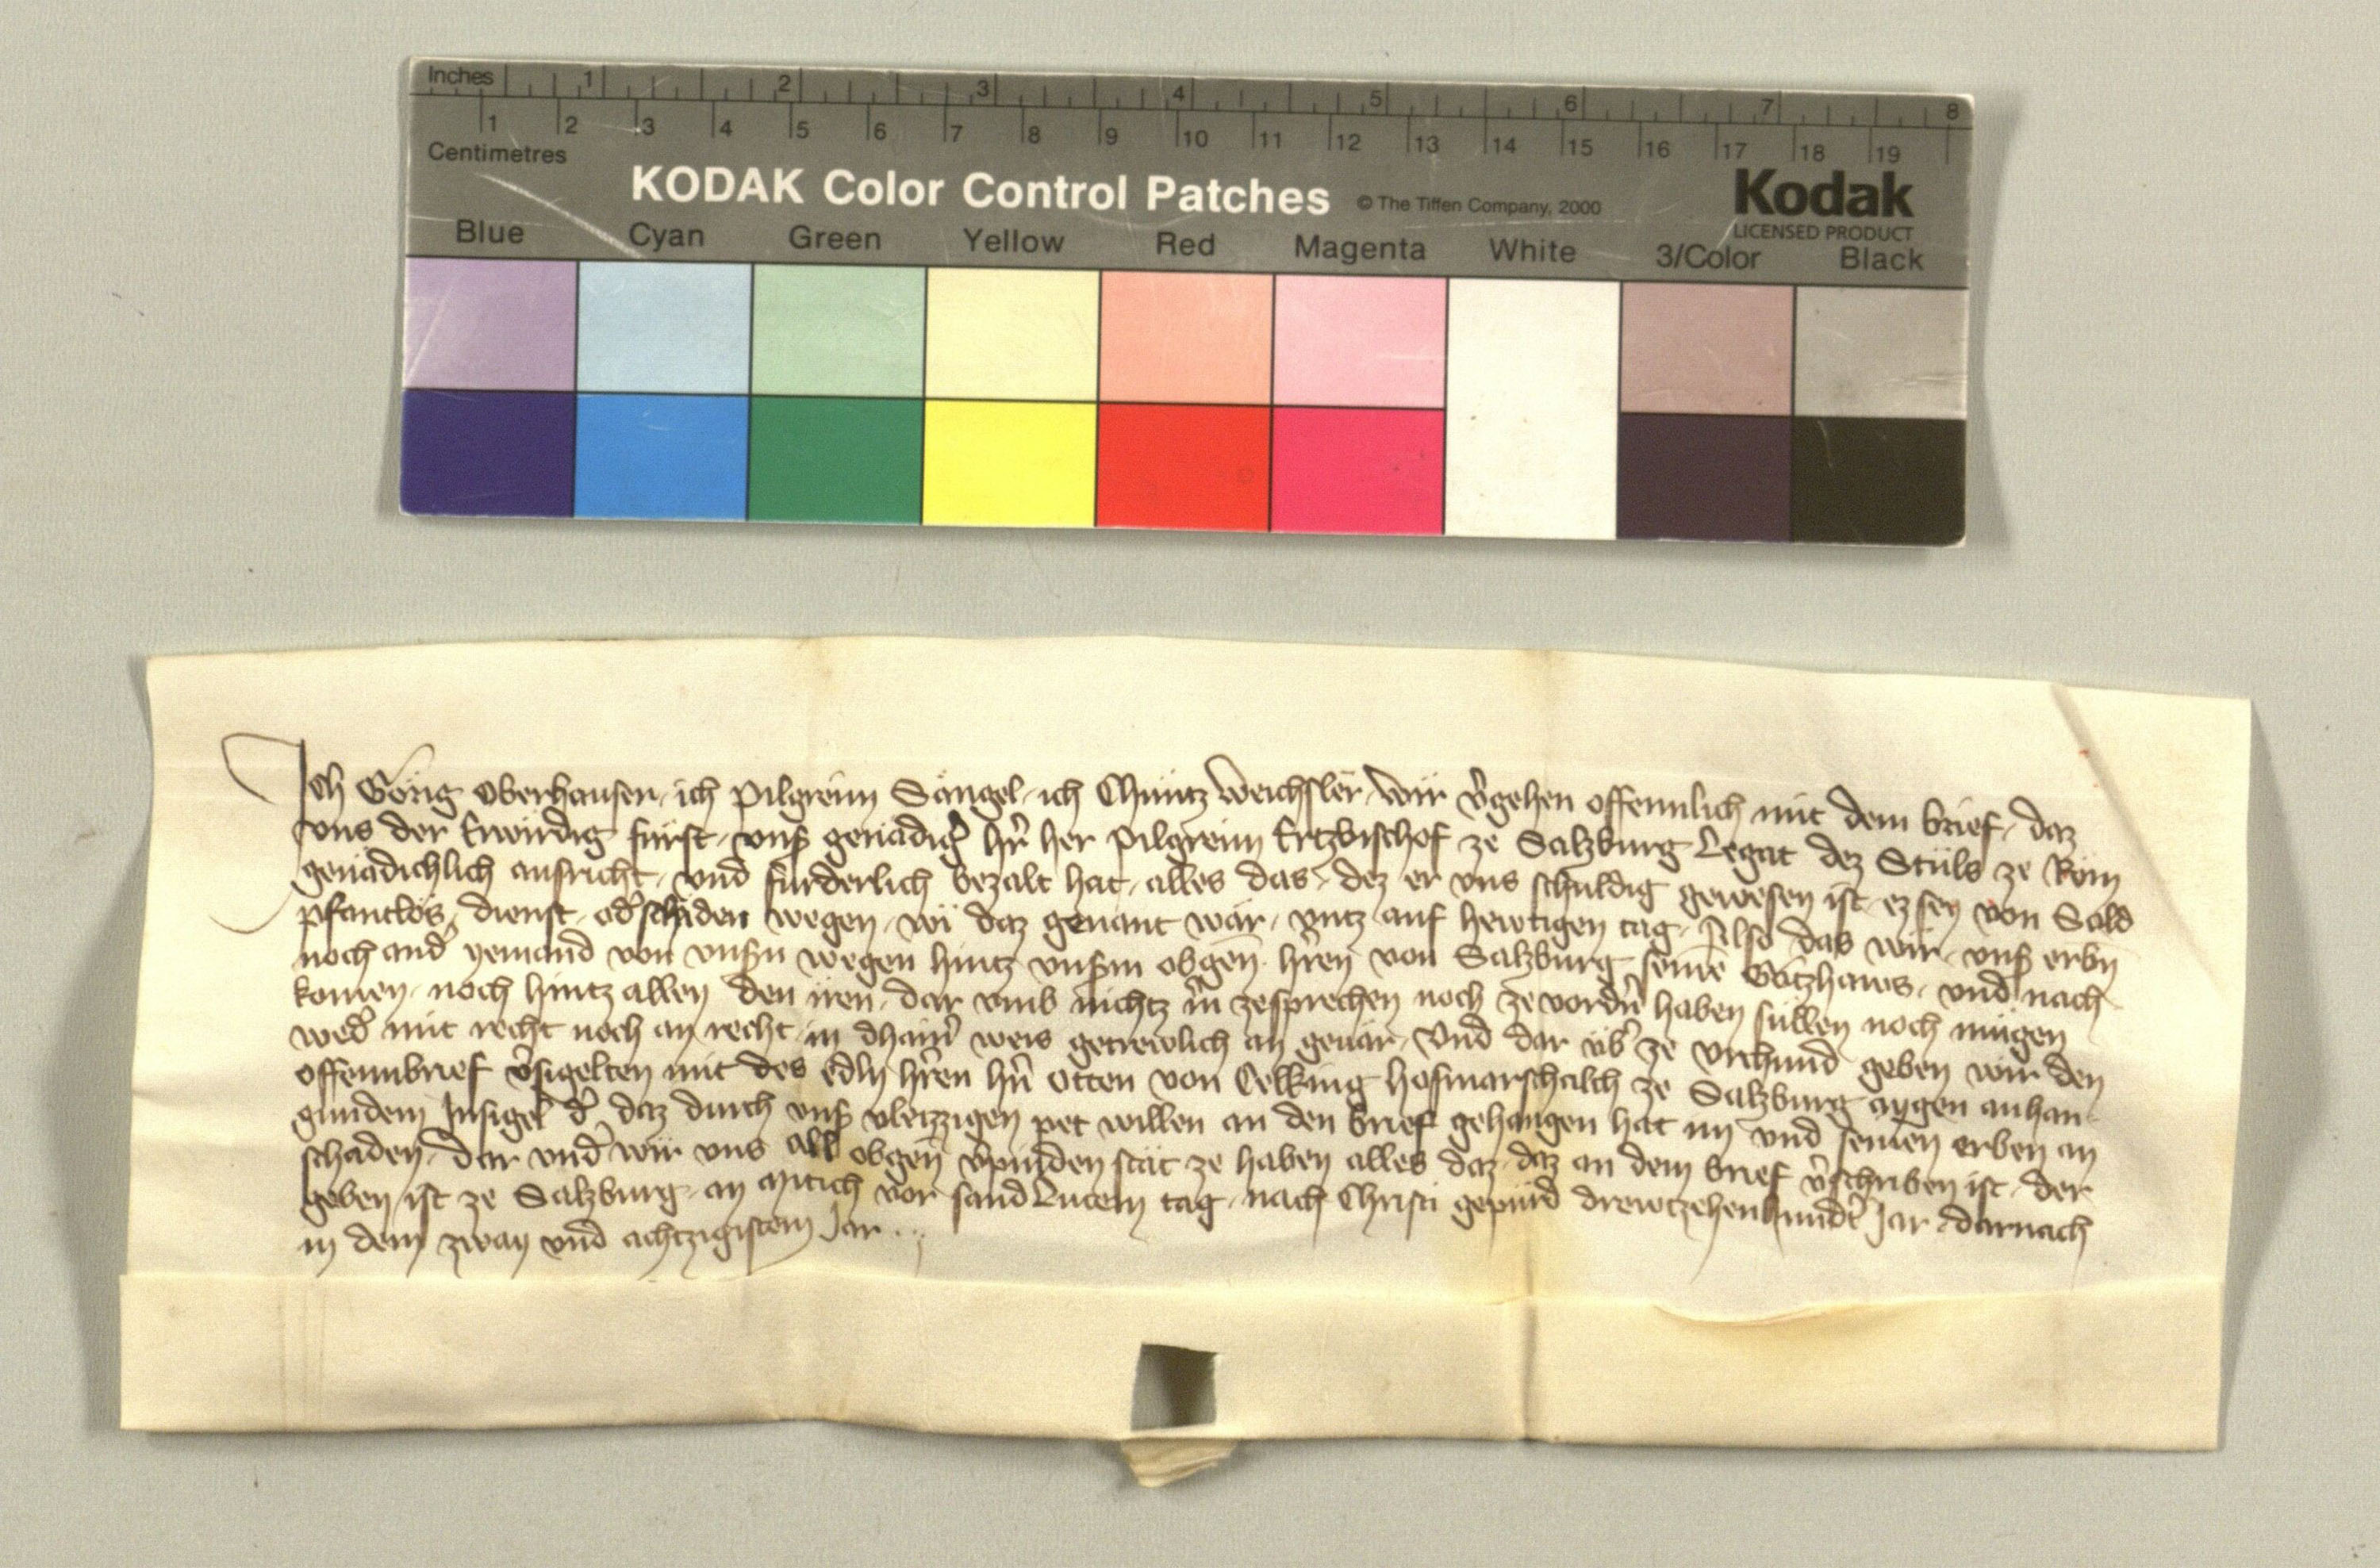 Inches 1 2 3 4 5 6 7 8
1 2 3 4 5 6 7 8 9 10 11 12 13 14 15 16 17 18 19
Centimetres
KODAK Color Control Patches © The Tiffen Company, 2000 Kodak
LICENSED PRODUCT
Blue Cyan Green Yellow Red Magenta White 3/Color Black
Ich Görig Oberhauser, ich Pilgreim Sängel, ich Chuntz Weichsler, wir v̉gehen offennlich mit dem brief, daz
vns der Erwirdig fürst, vnß genädig̉ hr̉ her Pilgreim Ertzbischof ze Salzburg Legat dez Stüls ze Rom
genädichlich ausricht, vnd fürderlich bezalt hat, alles das, dez er vns schuldig gewesen ist, ez sey von Sold
pfantlös, dienst, od̉ schäden wegen, wi daz genant wär, vntz auf hewtigen tag, Also das wir, vnß erbn̄
noch and̉ yemand von vnßn wegen hintz vnßm obgen̄ hr̉en von Salzburg seinē Gotzhaws, vnd nach
komen, noch hintz allen den iren, dar vmb nichtz in̉ zesprechen noch ze vordn̉ haben süllen noch mügen
wed̉ mit recht noch an recht, in dhain̉ weis getrewlich an geuär, Vnd dar üb̉ ze vrchund geben wir den
offennbrief v̉sigelten mit des edln hr̉en hn̉ Otten von Celking hofmarschalch ze Salzburg aygen anhan
gundem Insigel d̉ daz durch vnß vleizzigen pet willen an den brief gehangen hat im vnd seinen erben an
schaden, dar vnd̉ wir vns all obgen̄ v̉pinden stät ze haben alles daz, daz an dem brief v̉schriben ist, der
geben ist ze Salzburg, an Mitich vor sand Lucein tag, nach Christi gepürd drewtzehenhundt̉ Jar, darnach
in dem zway vnd achtzigistem Jar